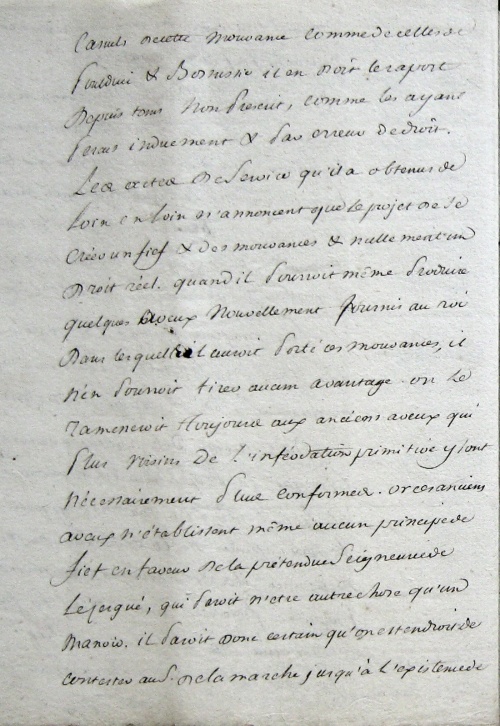 casuels de cette mouvance comme de celles de
Pouldivi & Bonnissio il en doit le raport
depuis tems non prescrit, comme les ayant
perçus induement & par erreur de droit.
Les actes de service qu'il a obtenus de
loin en loin n'annoncent que le projet de se
créer un fief & des mouvances & nullement un
droit réel. quand il pourroit même produire
quelques aveux nouvellement fournis au roi
dans lesquels il auroit porté ces mouvances, il
n'en pourroit tirer aucun avantage. on le
rameneroit toujours aux anciens aveux qui
plus voisins de l'inféodation primitive y sont
nécessairement plus conformes. or ces anciens
aveux n'établissent même aucun principe de
fief en faveur de la prétendue seigneurie de
Lézergué, qui paroit n'etre autre chose qu'un
manoir. il paroit donc certain qu'on est en droit de
contester au S. de la marche jusqu'à l'existence de